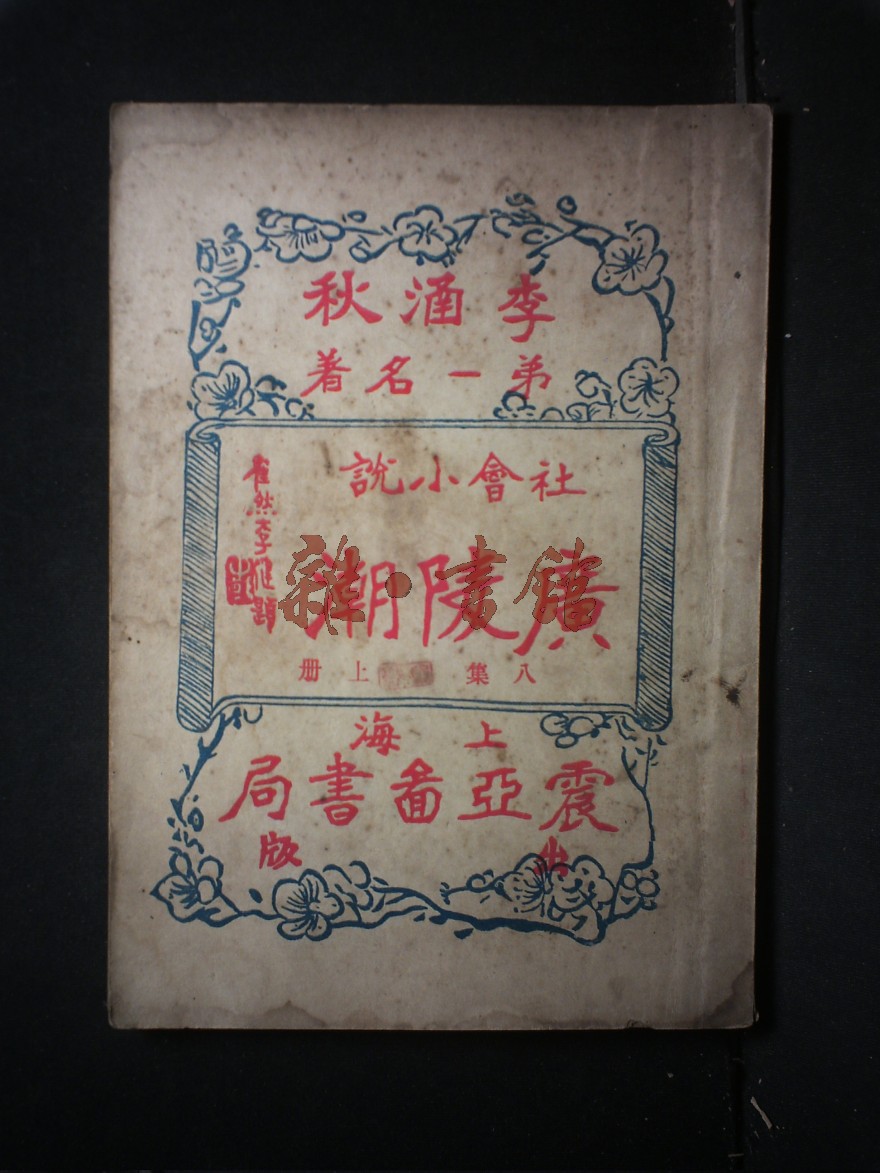 李涵秋
弟一名著
社會小說
廣陵潮
八集 上册
然李
題
上海
震亞啚書局
出版
雜·書館